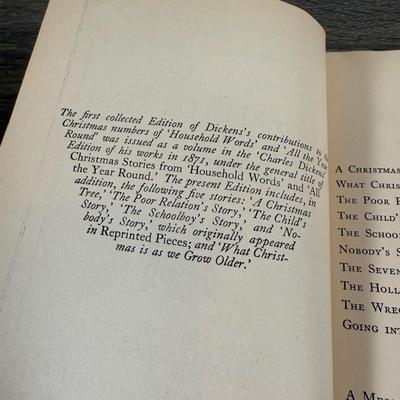 The first collected Edition of Dickens's contributions to the
Christmas numbers of 'Household Words' and 'All the Year
Round' was issued as a volume in the 'Charles Dickens'
Edition of his works in 1871, under the general title of
Christmas Stories from 'Household Words' and 'All
the Year Round.' The present Edition includes, in
addition, the following five stories: 'A Christmas
Tree,' 'The Poor Relation's Story,' 'The Child's
Story,' 'The Schoolboy's Story,' and 'No-
body's Story,' which originally appeared
in Reprinted Pieces; and 'What Christ-
mas is as we Grow Older.'
A Christmas
What Chris
The Poor
The Child's
The Schoo
Nobody's S
The Seven
The Holl
The Wrec
Going int